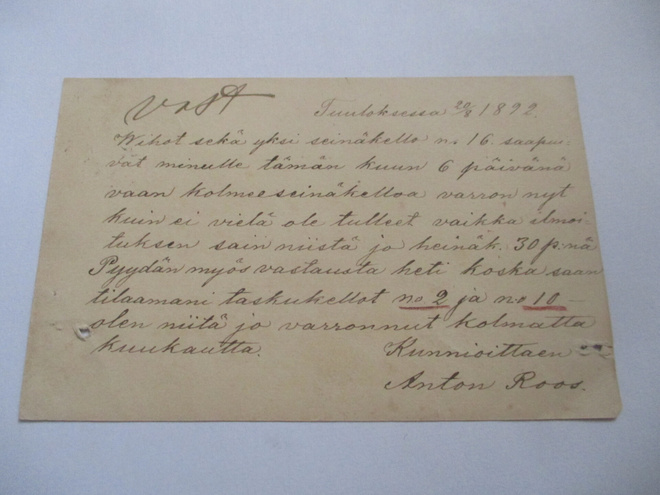 vast
Tuuloksessa 20/8 1892
Wihot sekä yksi seinäkello no 16. saapu-
vat minulle tämän kuun 6 päivänä
vaan kolmee seinäkelloa varron nyt
kuin ei vielä ole tulleet vaikka ilmoi-
tuksen sain niistä jo heinäk. 30 p:nä
Pyydän myös vastausta heti koska saan
tilaamani taskukellot no 2 ja no 10 –
olen niitä jo varronnut kolmatta
kuukautta. Kunnioittaen
Anton Roos.